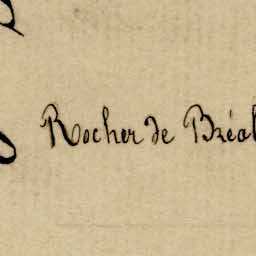 Rocher de Bréal